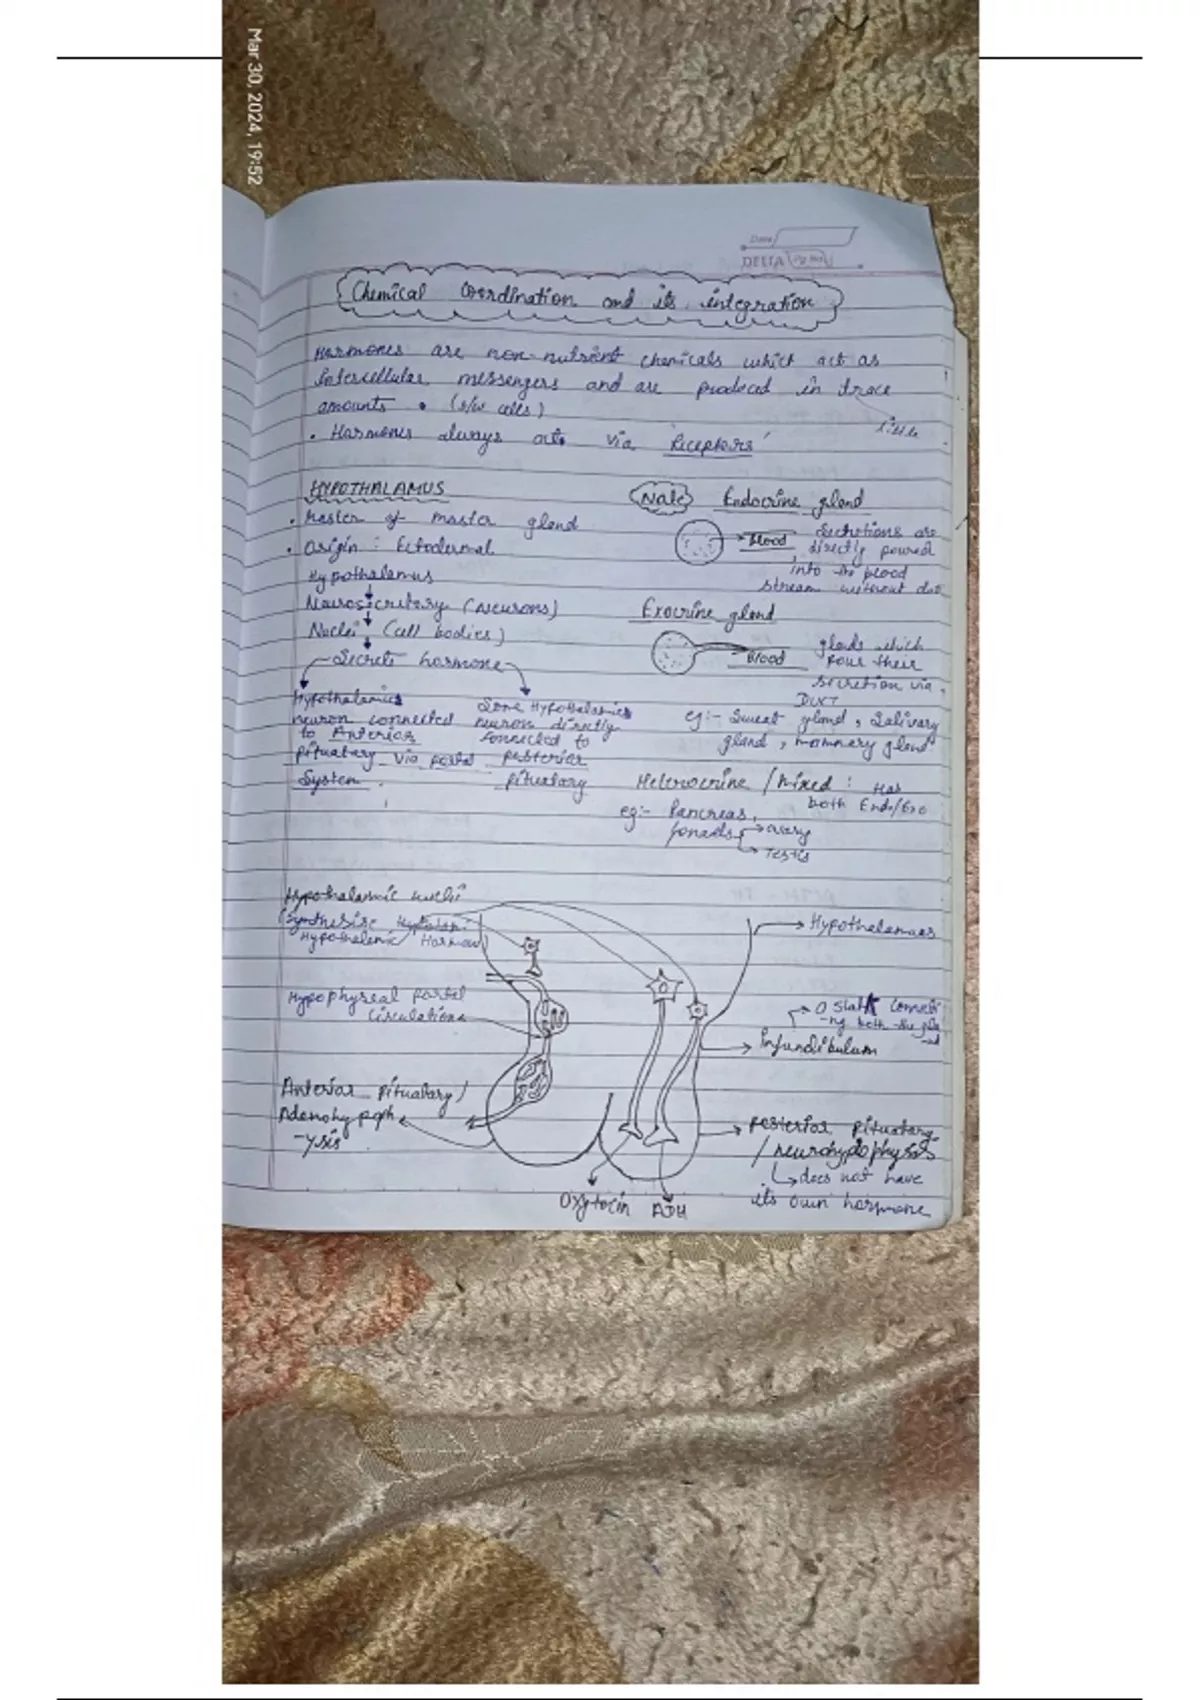 Mar 30, 2024, 19:52
Date
DELTA Pg No.
Chemical Coordination and its integration
Hormones are non-nutrient chemicals which act as
intercellular messengers and are produced in trace
amounts. (b/w cells)
little
• Hormones always act via 'Receptors'
HYPOTHALAMUS
• Master of master gland
• Origin : Ectodermal
Hypothalamus
Neurosecretary (Neurons)
Nuclei (cell bodies)
Secrete hormone
Hypothalamic
neuron connected
to Anterior
pituatary via portal
System.
Some Hypothalamic
neuron directly
connected to
posterior
pituatary
Note Endocrine gland
blood Secretions are
directly poured
into the blood
stream without duct
Exocrine gland
Blood glands which
pour their
secretion via,
DUCT
eg:- Sweat gland, Salivary
gland, mammary gland
Heterocrine / Mixed : Has
both Endo/Exo
eg:- Pancreas,
Gonads ovary
Testis
Hypothalamic nuclei
(Synthesize
Hypothalamic Hormone)
Hypophyseal portal
Circulationa
Anterior pituatary/
Adenohypoph
-ysis
Hypothalamus
a stalk connecti
-ng both the gla
-nd
Infundibulum
posterior pituatary
/ neurohypophysis
does not have
its own hormone
Oxytocin ADH